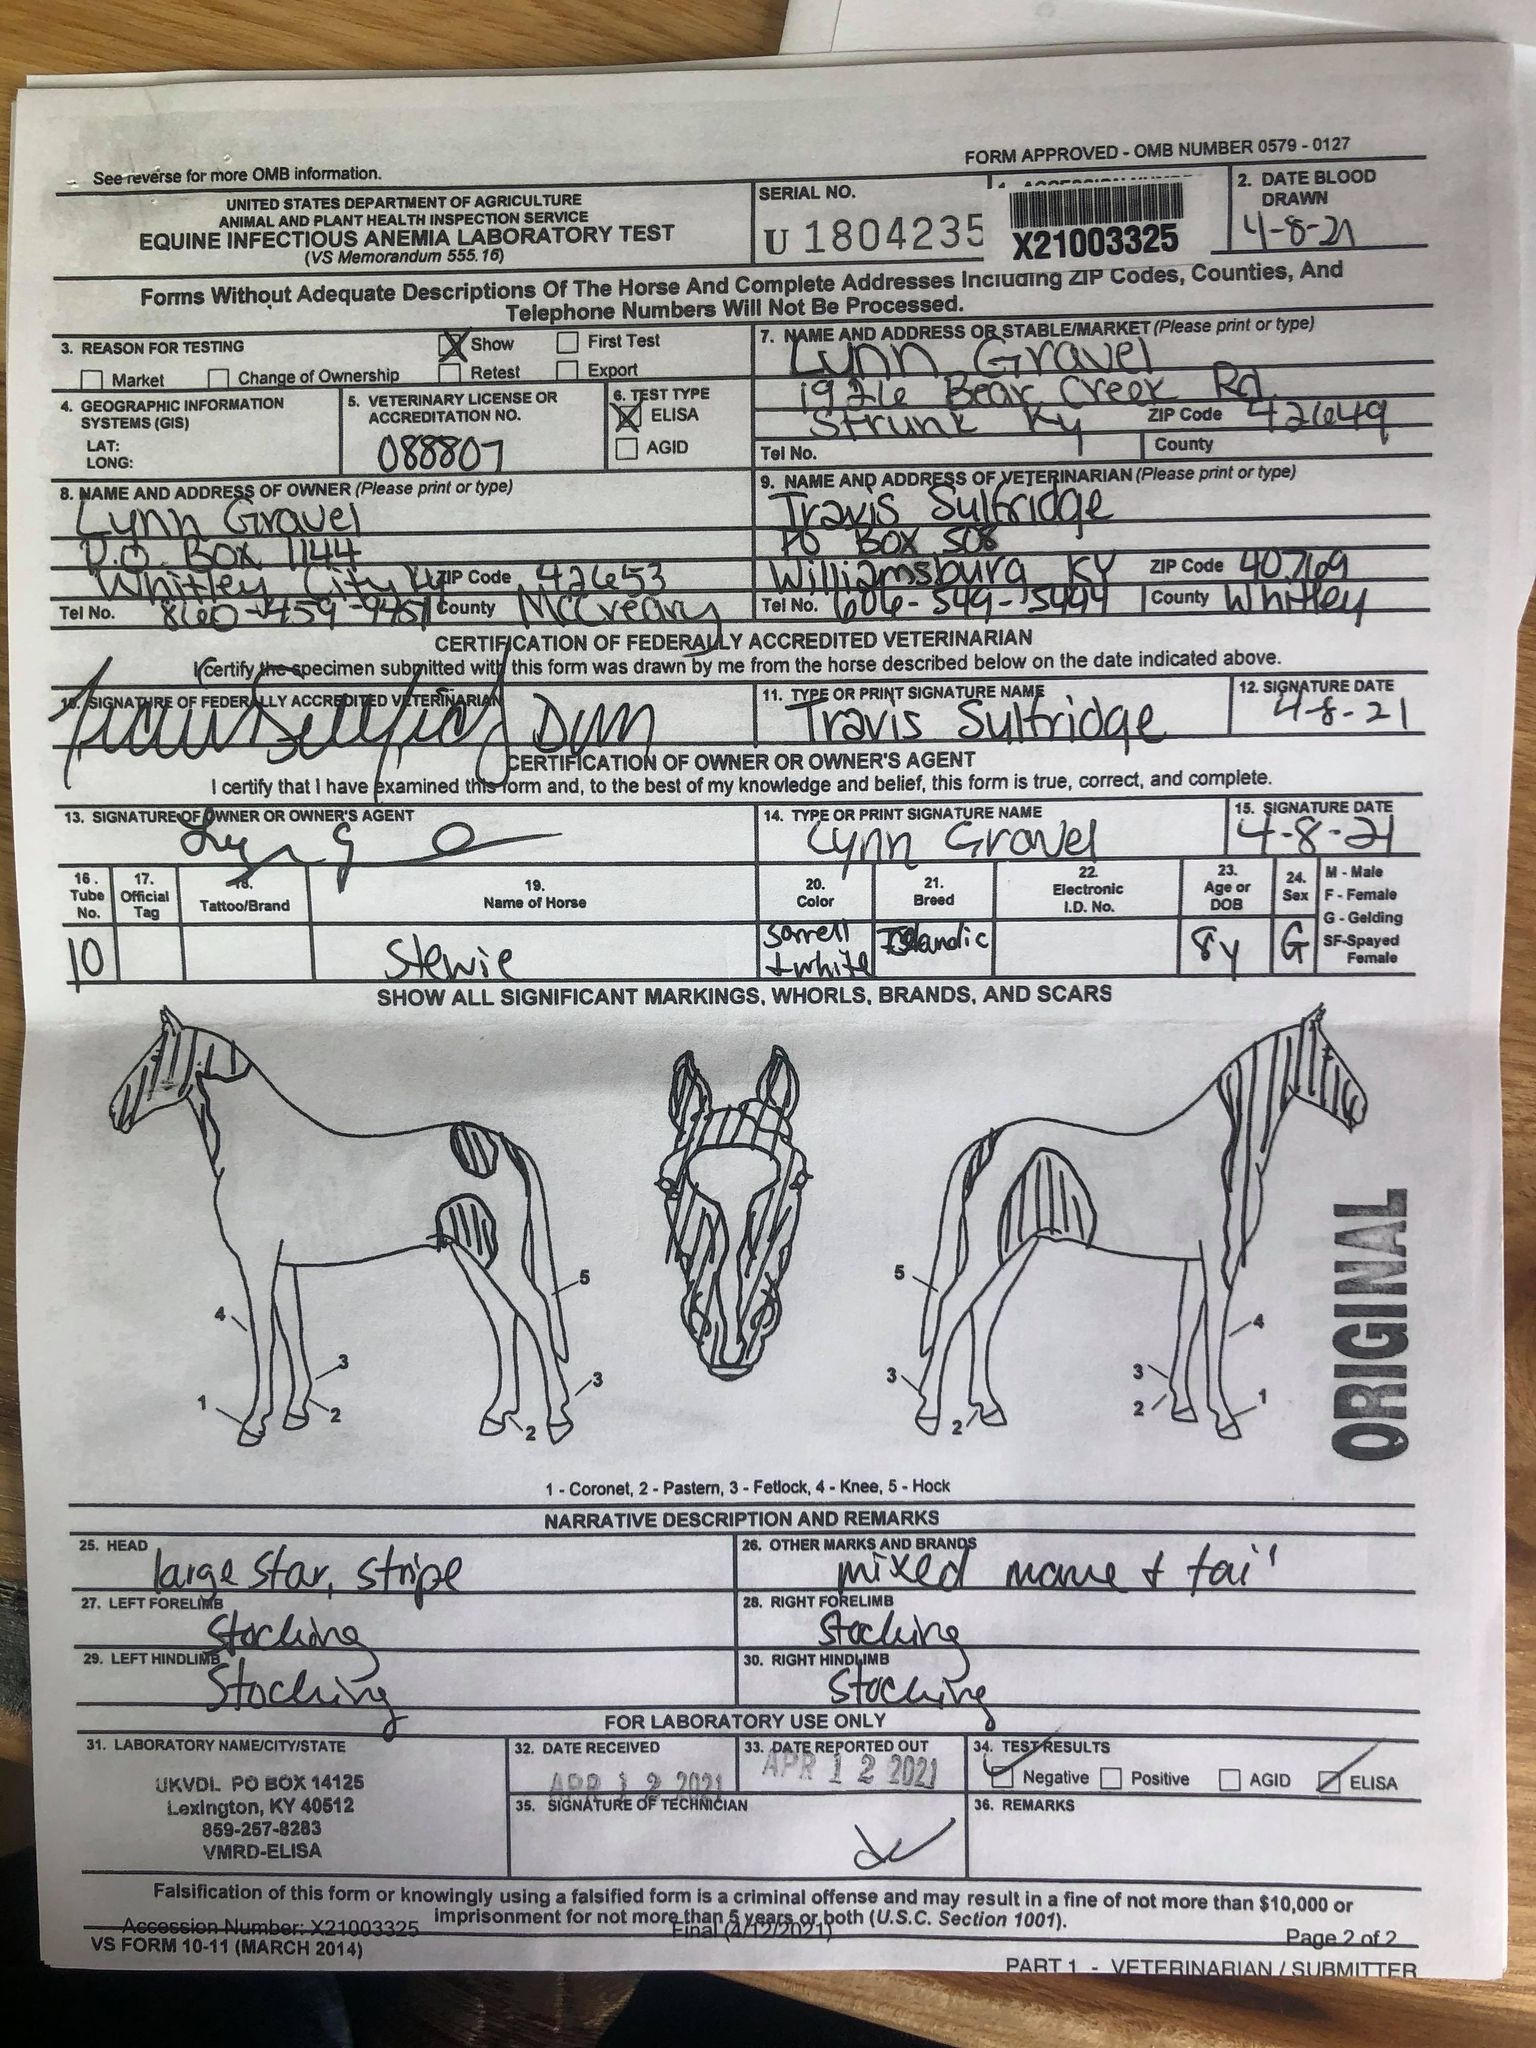 FORM APPROVED - OMB NUMBER 0579 - 0127
See reverse for more OMB information.
UNITED STATES DEPARTMENT OF AGRICULTURE
ANIMAL AND PLANT HEALTH INSPECTION SERVICE
EQUINE INFECTIOUS ANEMIA LABORATORY TEST
(VS Memorandum 555.16)
SERIAL NO.
U 1804235
X21003325
2. DATE BLOOD DRAWN
4-8-21
Forms Without Adequate Descriptions Of The Horse And Complete Addresses Including ZIP Codes, Counties, And
Telephone Numbers Will Not Be Processed.
3. REASON FOR TESTING
Show First Test
Market Change of Ownership Retest Export
7. NAME AND ADDRESS OR STABLE/MARKET (Please print or type)
Lynn Gravel
1926 Bear Creek Rd
Strunk Ky ZIP Code 42649
Tel No. County
4. GEOGRAPHIC INFORMATION SYSTEMS (GIS)
LAT:
LONG:
5. VETERINARY LICENSE OR ACCREDITATION NO.
088807
6. TEST TYPE
ELISA
AGID
8. NAME AND ADDRESS OF OWNER (Please print or type)
Lynn Gravel
P.O. Box 1144
Whitley City Ky ZIP Code 42653
Tel No. 860-459-9451 County McCreary
9. NAME AND ADDRESS OF VETERINARIAN (Please print or type)
Travis Sulfridge
PO Box 508
Williamsburg KY ZIP Code 40769
Tel No. 606-549-5494 County Whitley
CERTIFICATION OF FEDERALLY ACCREDITED VETERINARIAN
I certify the specimen submitted with this form was drawn by me from the horse described below on the date indicated above.
10. SIGNATURE OF FEDERALLY ACCREDITED VETERINARIAN
11. TYPE OR PRINT SIGNATURE NAME
Travis Sulfridge
12. SIGNATURE DATE
4-8-21
CERTIFICATION OF OWNER OR OWNER'S AGENT
I certify that I have examined this form and, to the best of my knowledge and belief, this form is true, correct, and complete.
13. SIGNATURE OF OWNER OR OWNER'S AGENT
14. TYPE OR PRINT SIGNATURE NAME
Lynn Gravel
15. SIGNATURE DATE
4-8-21
16. Tube No.
17. Official Tag
18. Tattoo/Brand
19. Name of Horse
20. Color
21. Breed
22. Electronic I.D. No.
23. Age or DOB
24. Sex
M - Male
F - Female
G - Gelding
SF-Spayed Female
10 Stewie Sorrell + white Icelandic 8y G
SHOW ALL SIGNIFICANT MARKINGS, WHORLS, BRANDS, AND SCARS
4 3 1 2 5 3 2
5 3 2 4 3 2 1
ORIGINAL
1 - Coronet, 2 - Pastern, 3 - Fetlock, 4 - Knee, 5 - Hock
NARRATIVE DESCRIPTION AND REMARKS
25. HEAD
large star, stripe
26. OTHER MARKS AND BRANDS
mixed mane + tail
27. LEFT FORELIMB
Stocking
28. RIGHT FORELIMB
Stocking
29. LEFT HINDLIMB
Stocking
30. RIGHT HINDLIMB
Stocking
FOR LABORATORY USE ONLY
31. LABORATORY NAME/CITY/STATE
UKVDL PO BOX 14125
Lexington, KY 40512
859-257-8283
VMRD-ELISA
32. DATE RECEIVED
APR 12 2021
33. DATE REPORTED OUT
APR 12 2021
34. TEST RESULTS
Negative Positive AGID ELISA
35. SIGNATURE OF TECHNICIAN
36. REMARKS
Falsification of this form or knowingly using a falsified form is a criminal offense and may result in a fine of not more than $10,000 or
imprisonment for not more than 5 years or both (U.S.C. Section 1001).
Accession Number: X21003325 Final (4/12/2021) Page 2 of 2
VS FORM 10-11 (MARCH 2014)
PART 1 - VETERINARIAN / SUBMITTER